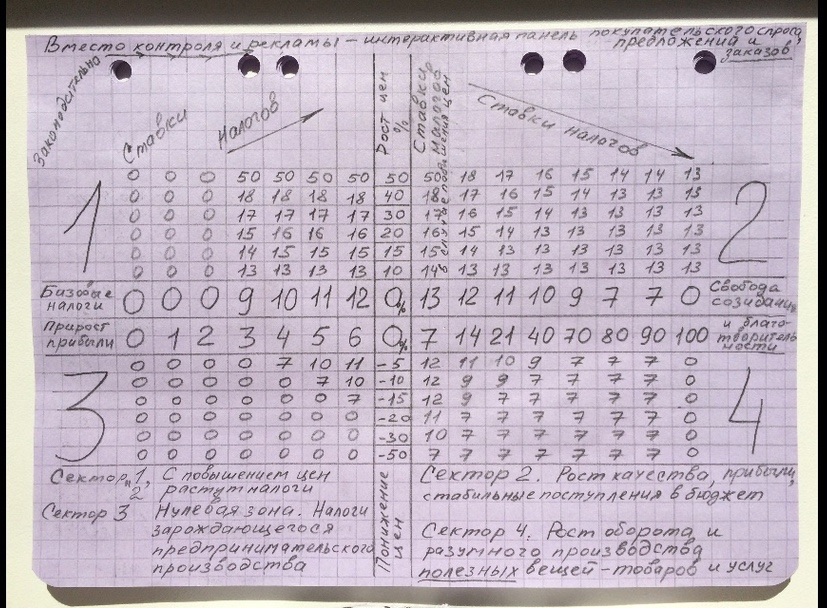 Вместо контроля и рекламы – интерактивная панель покупательского спроса,
предложений и
заказов
Законодательно
Ставки
Налогов
Рост цен
%
Ставки
налогов
Ставки налогов
0 0 0 50 50 50 50 50 50 18 17 16 15 14 14 13
0 0 0 18 18 18 18 40 18 17 16 15 14 13 13 13
0 0 0 17 17 17 17 30 17 16 15 14 13 13 13 13
0 0 0 15 16 16 16 20 16 15 14 13 13 13 13 13
0 0 0 14 15 15 15 15 15 14 13 13 13 13 13 13
0 0 0 13 13 13 13 10 14 13 13 13 13 13 13 13
1
2
Базовые
налоги
0 0 0 9 10 11 12 0% 13 12 11 10 9 7 7 0
Свобода
созидания
Прирост
прибыли
0 1 2 3 4 5 6 0% 7 14 21 40 70 80 90 100
и благо-
творитель
ности
0 0 0 0 7 10 11 -5 12 11 10 9 7 7 7 0
0 0 0 0 0 7 10 -10 12 9 9 7 7 7 7 0
0 0 0 0 0 0 7 -15 12 9 7 7 7 7 7 0
0 0 0 0 0 0 0 -20 11 7 7 7 7 7 7 0
0 0 0 0 0 0 0 -30 10 7 7 7 7 7 7 0
0 0 0 0 0 0 0 -50 7 7 7 7 7 7 7 0
3
4
Сектор 1 и 2, С повышением цен
растут налоги
Сектор 3 Нулевая зона. Налоги
зарождающегося
предпринимательского
производства
Понижение
цен
Сектор 2. Рост качества, прибыли,
стабильные поступления в бюджет
Сектор 4. Рост оборота и
разумного производства
полезных вещей–товаров и услуг